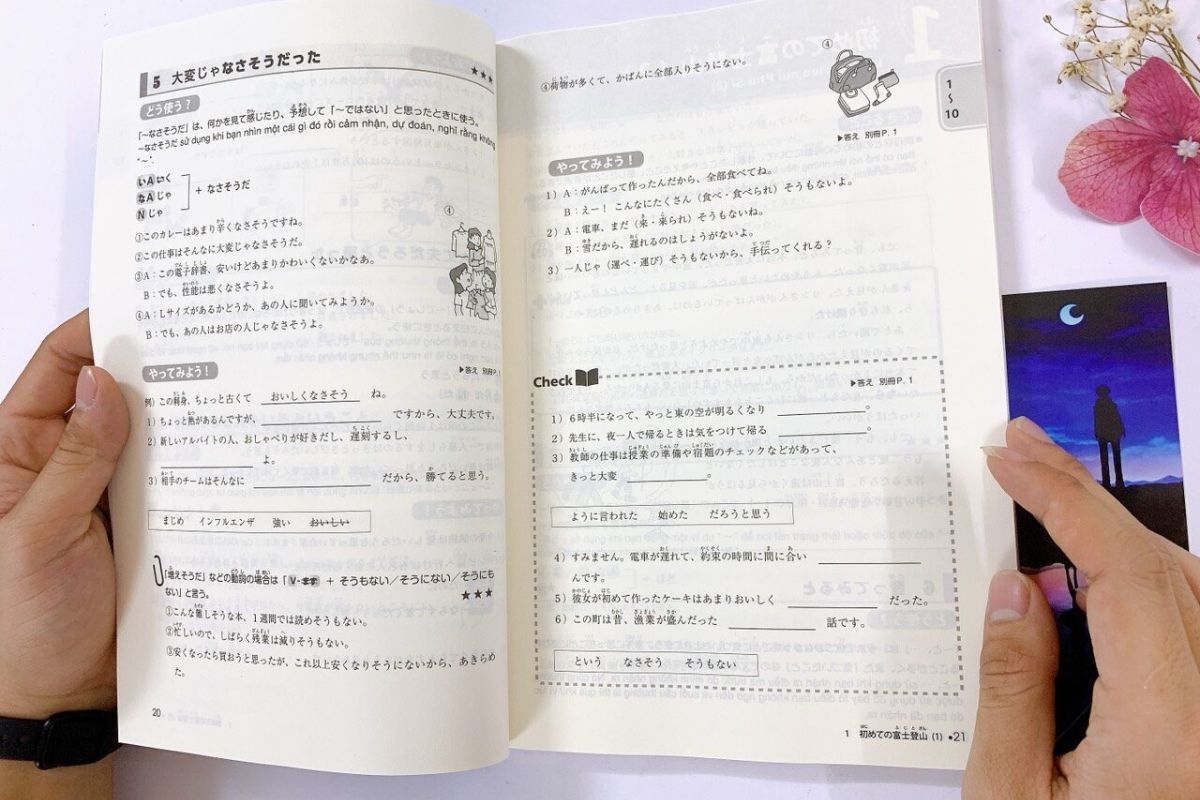 5 大変じゃなさそうだった
★★★
どう使う？
「～なさそうだ」は、何かを見て感じたり、予想して「～ではない」と思ったときに使う。
～なさそうだ sử dụng khi bạn nhìn một cái gì đó rồi cảm nhận, dự đoán, nghĩ rằng không
"～".
いA いく
なA じゃ
N じゃ
+ なさそうだ
①このカレーはあまり辛くなさそうですね。
②この仕事はそんなに大変じゃなさそうだ。
③A：この電子辞書、安いけどあまりかわいくないかなあ。
B：でも、性能は悪くなさそうよ。
④A：Lサイズがあるかどうか、あの人に聞いてみようか。
B：でも、あの人はお店の人じゃなさそうよ。
④
やってみよう！
▶答え 別冊P. 1
例）この刺身、ちょっと古くて おいしくなさそう ね。
1）ちょっと熱があるんですが、 ですから、大丈夫です。
2）新しいアルバイトの人、おしゃべりが好きだし、遅刻するし、
よ。
3）相手のチームはそんなに だから、勝てると思う。
まじめ インフルエンザ 強い おいしい
「増えそうだ」などの動詞の場合は「V-ます + そうもない／そうにない／そうにも
ない」と言う。
★★★
①こんな難しそうな本、1週間では読めそうもない。
②忙しいので、しばらく残業は減りそうもない。
③安くなったら買おうと思ったが、これ以上安くなりそうにないから、あきらめ
た。
20
④荷物が多くて、かばんに全部入りそうにない。
④
1
～
10
▶答え 別冊P. 1
やってみよう！
1）A：がんばって作ったんだから、全部食べてね。
B：えー！ こんなにたくさん（食べ・食べられ）そうもないよ。
2）A：電車、まだ（来・来られ）そうもないね。
B：雪だから、遅れるのはしょうがないよ。
3）一人じゃ（運べ・運び）そうもないから、手伝ってくれる？
Check
▶答え 別冊P. 1
1）6時半になって、やっと東の空が明るくなり 。
2）先生に、夜一人で帰るときは気をつけて帰る 。
3）教師の仕事は授業の準備や宿題のチェックなどがあって、
きっと大変 。
ように言われた 始めた だろうと思う
4）すみません。電車が遅れて、約束の時間に間に合い
んです。
5）彼女が初めて作ったケーキはあまりおいしく だった。
6）この町は昔、漁業が盛んだった 話です。
という なさそう そうもない
1 初めての富士登山（1）●21